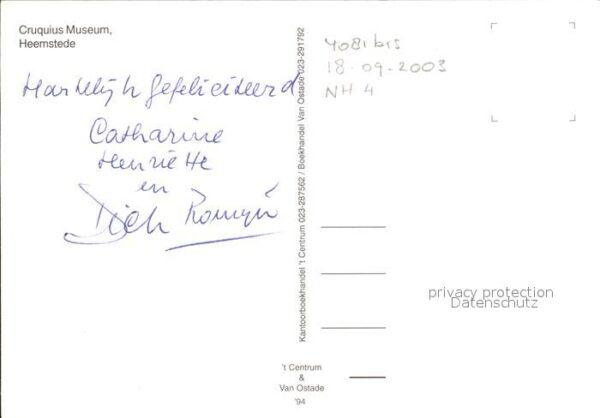 Cruquius Museum,
Heemstede
Hartelijk gefeliciteerd
Catharine
Henriëtte
en
Dick Romijn
Kantoorboekhandel 't Centrum 023-287562 / Boekhandel Van Ostade 023-291792
4081 bis
18-09-2003
NH 4
privacy protection
Datenschutz
't Centrum
&
Van Ostade
'94